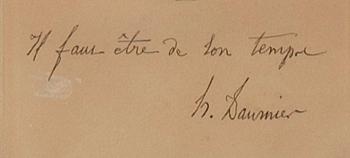 Il faut être de son temps
h. Daumier